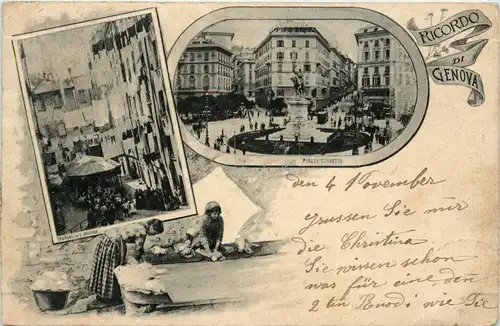 RICORDO
DI
GENOVA
PIAZZA CORVETTO
den 4 November
grussen Sie mir
die Christina
Sie wissen schon
was für eine, den
2 ten Ruodi wie Sie